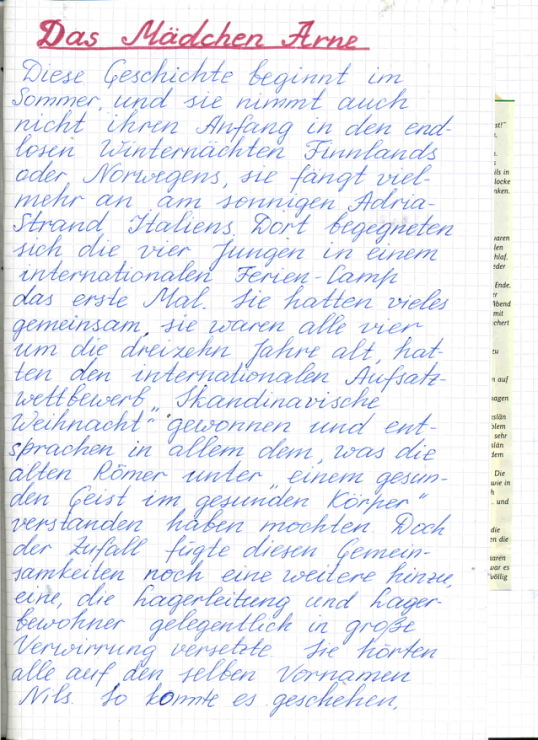 Das Mädchen Arne
Diese Geschichte beginnt im
Sommer, und sie nimmt auch
nicht ihren Anfang in den end-
losen Winternächten Finnlands
oder Norwegens, sie fängt viel-
mehr an am sonnigen Adria-
Strand Italiens. Dort begegneten
sich die vier Jungen in einem
internationalen Ferien-Camp
das erste Mal. Sie hatten vieles
gemeinsam, sie waren alle vier
um die dreizehn Jahre alt, hat-
ten den internationalen Aufsatz-
wettbewerb „Skandinavische
Weihnacht“ gewonnen und ent-
sprachen in allem dem, was die
alten Römer unter „einem gesun-
den Geist im gesunden Körper“
verstanden haben mochten. Doch
der Zufall fügte diesen Gemein-
samkeiten noch eine weitere hinzu,
eine, die Lagerleitung und Lager-
bewohner gelegentlich in große
Verwirrung versetzte. Sie hörten
alle auf den selben Vornamen
Nils. So konnte es geschehen,
st!"
ils in
locke
nken.
waren
len
hlaf.
eder
Ende.
er
Abend
mit
chert
zu
n auf
sagen
eslän
blem
sehr
slän
dem
Die
wie in
h
. und
die
en die
waren
war es
völlig